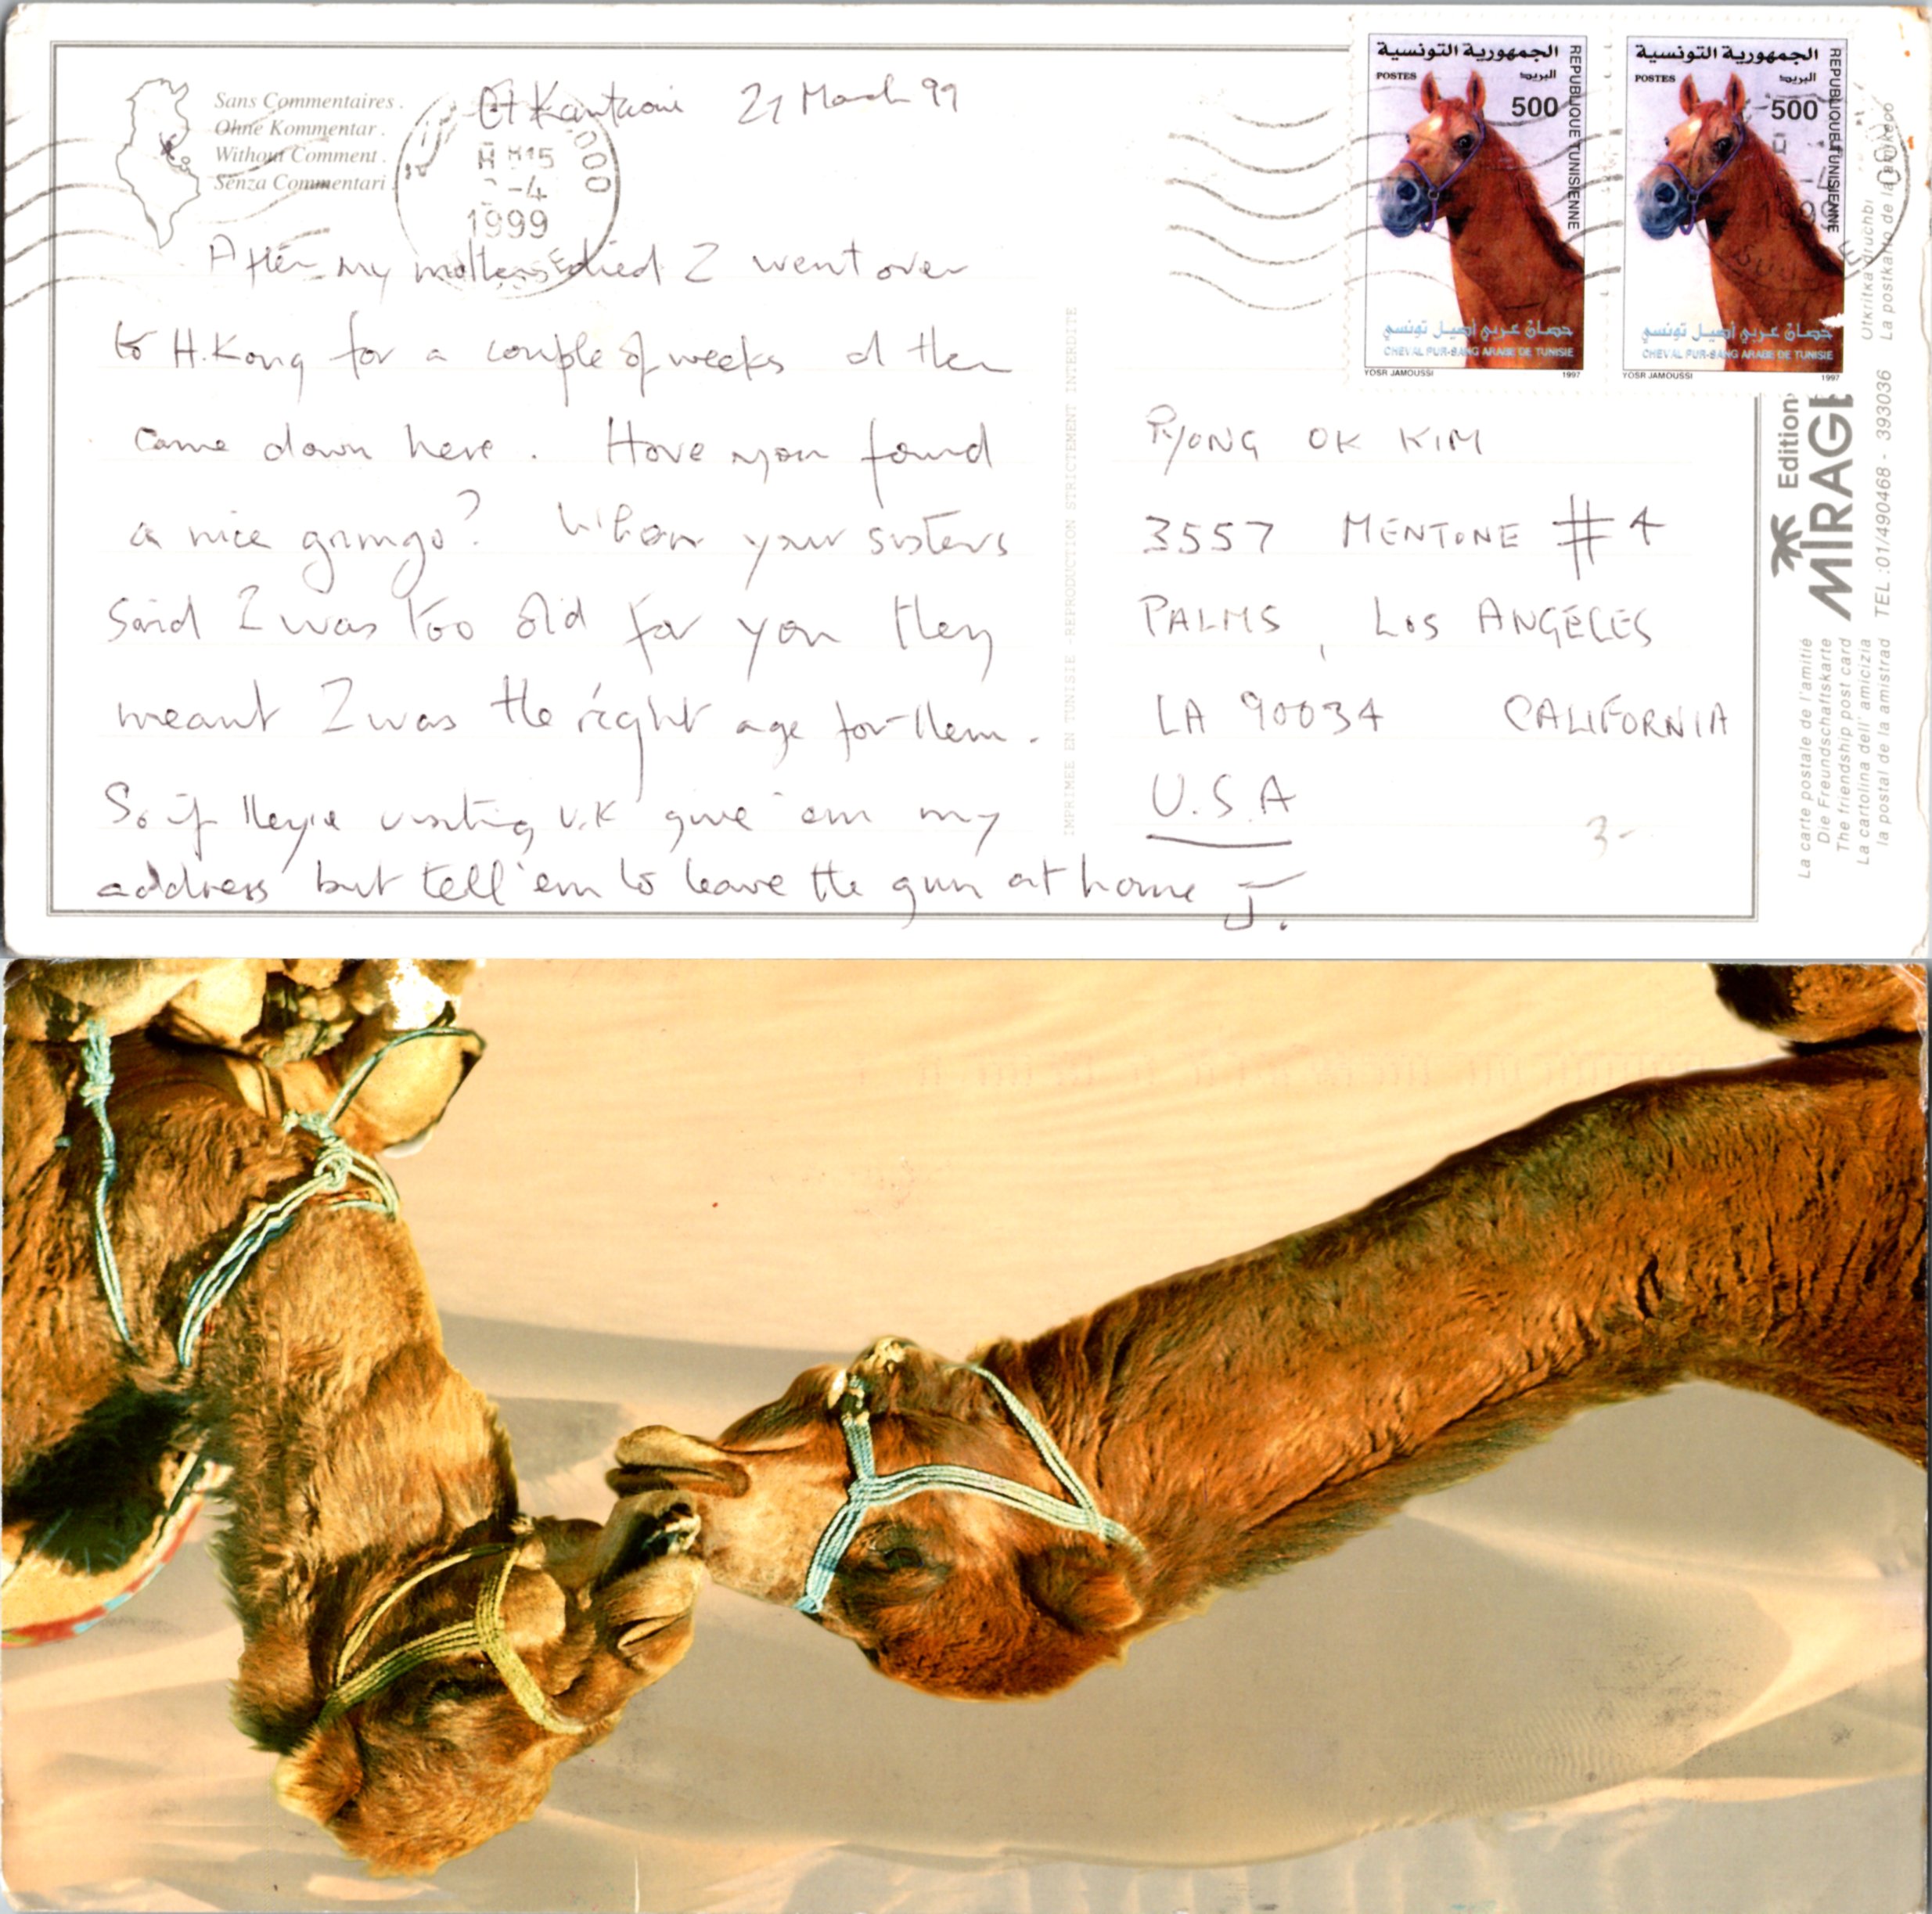 Sans Commentaires .
Ohne Kommentar .
Without Comment .
Senza Commentari .
El Kantaoui 21 March 99
H 15
-4
1999
After my mothers died I went over
to H.Kong for a couple of weeks & then
came down here. Have you found
a nice gringo? When your sisters
said I was too old for you they
meant I was the right age for them.
So if they're visiting U.K give 'em my
address but tell 'em to leave the gun at home J.
IMPRIMEE EN TUNISIE - REPRODUCTION STRICTEMENT INTERDITE
الجمهورية التونسية
POSTES البريد
500
REPUBLIQUE TUNISIENNE
حصان عربي أصيل تونسي
CHEVAL PUR-SANG ARABE DE TUNISIE
YOSR JAMOUSSI 1997
الجمهورية التونسية
POSTES البريد
500
REPUBLIQUE TUNISIENNE
حصان عربي أصيل تونسي
CHEVAL PUR-SANG ARABE DE TUNISIE
YOSR JAMOUSSI 1997
PYONG OK KIM
3557 MENTONE #4
PALMS, LOS ANGELES
LA 90034 CALIFORNIA
U.S.A
3-
Edition
MIRAGE
TEL :01/490468 - 393036
La carte postale de l'amitié
Die Freundschaftskarte
The friendship post card
La cartolina dell' amicizia
la postal de la amistrad
Utkritka druchbi
La postkarto de la